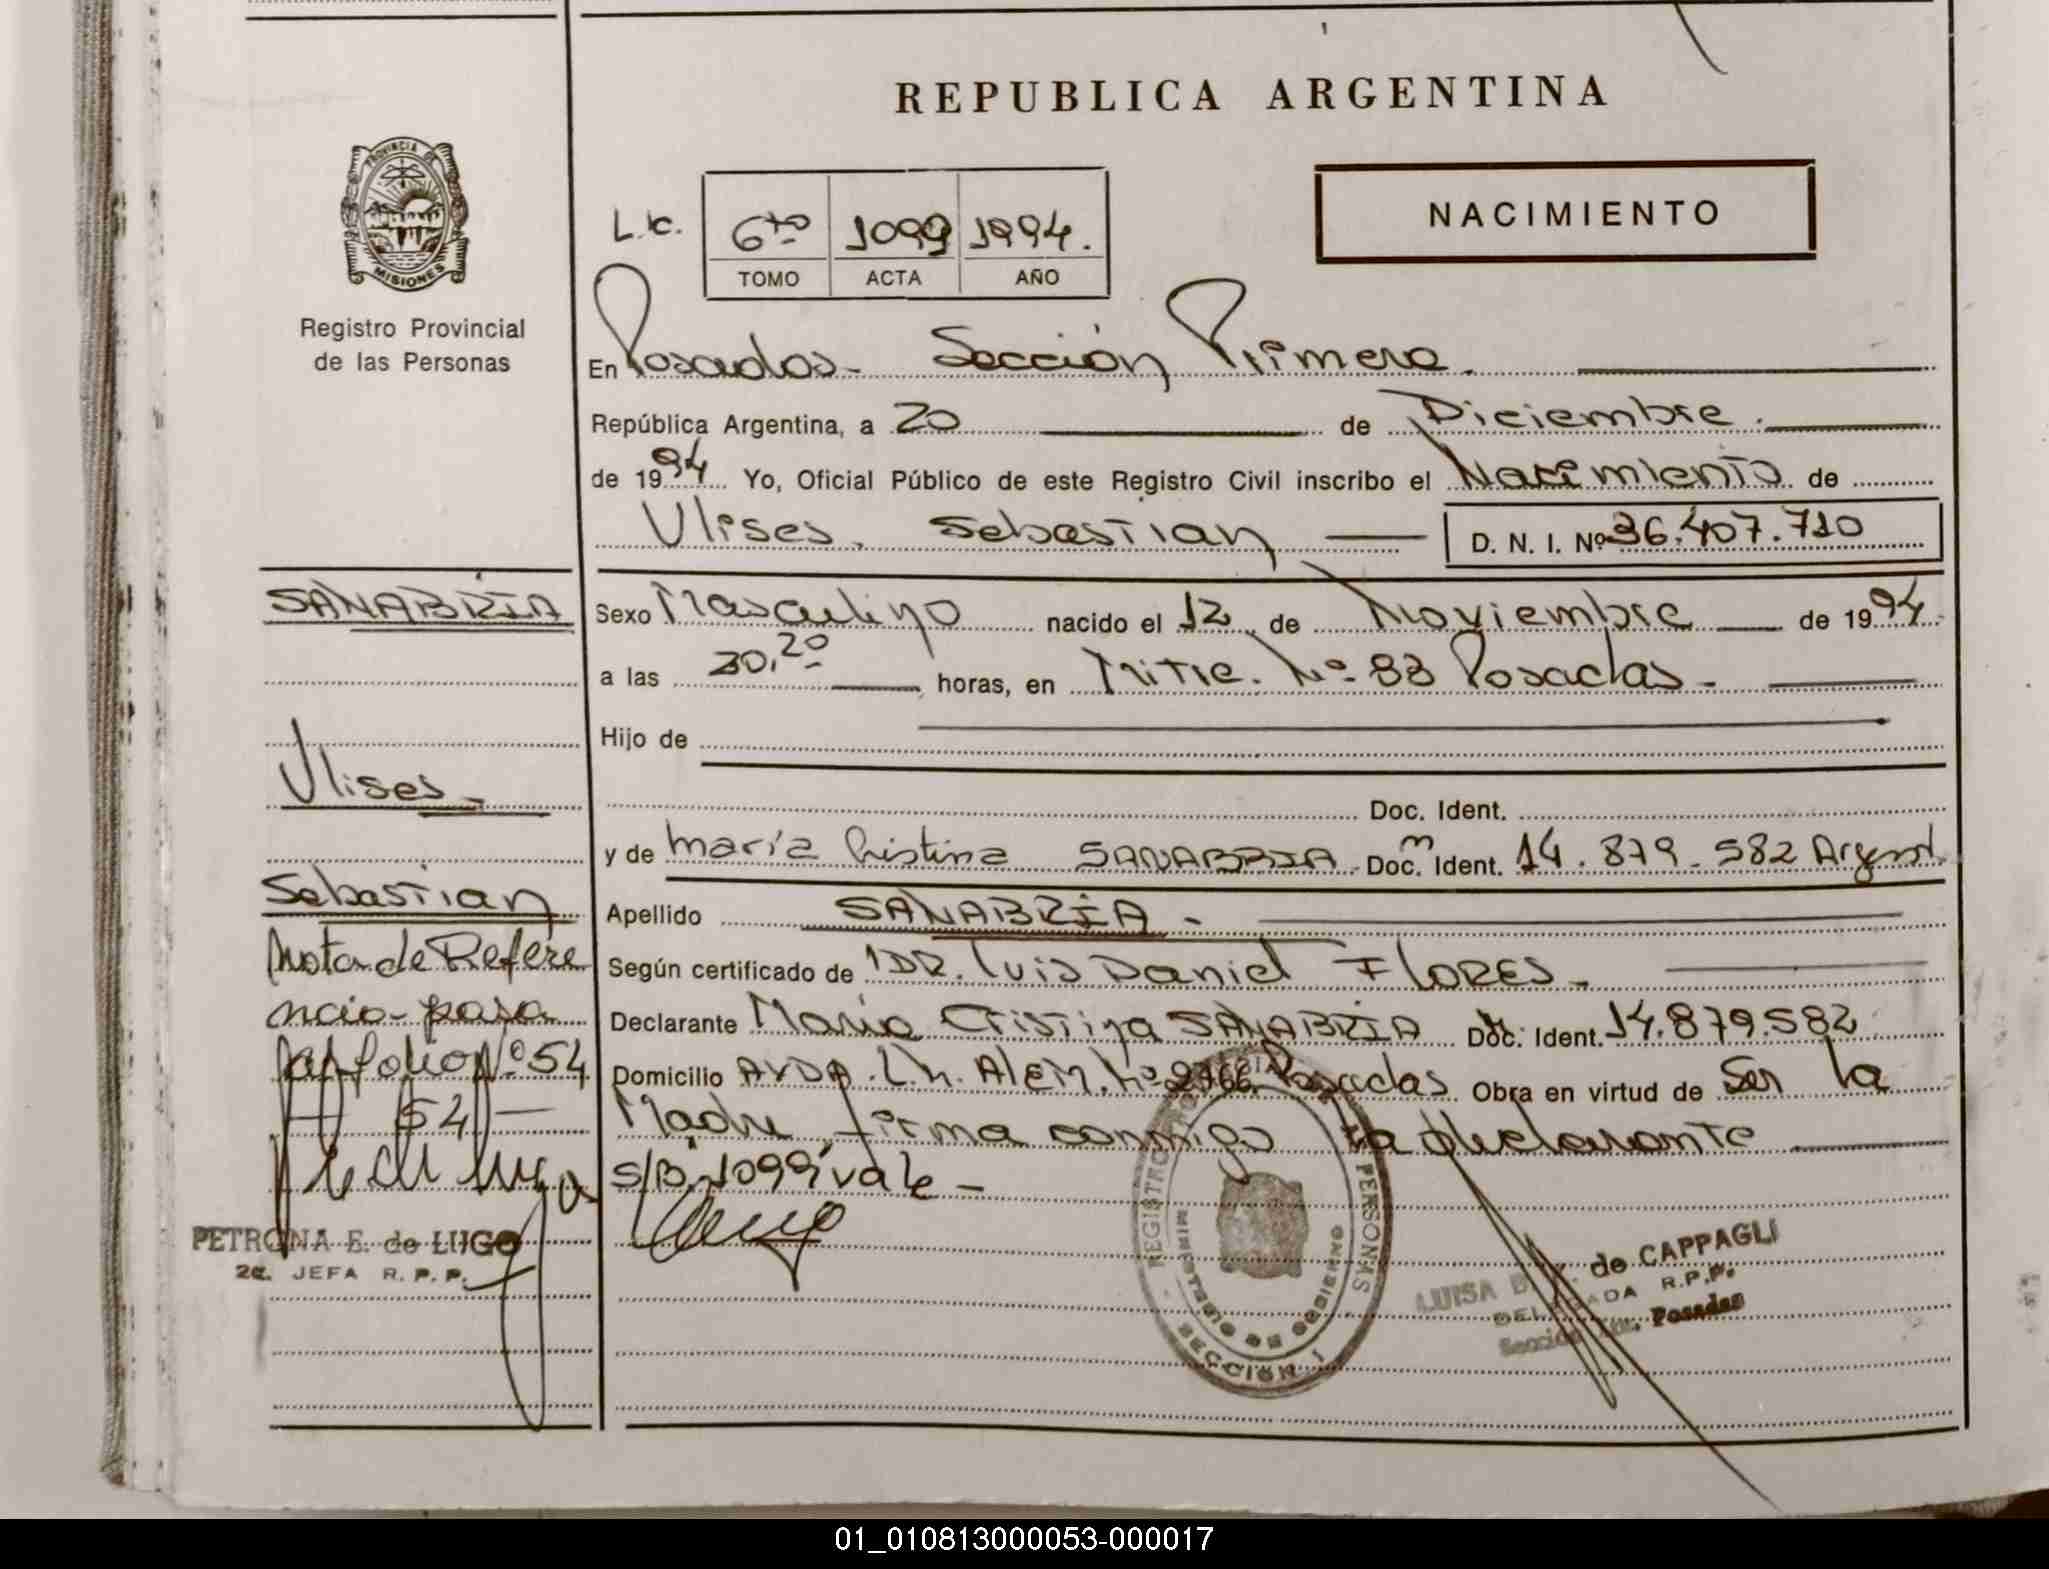 REPUBLICA ARGENTINA
PROVINCIA DE
MISIONES
Registro Provincial
de las Personas
NACIMIENTO
L.c. 6to 1099 1994.
TOMO ACTA AÑO
En Posadas - Sección Primera.
República Argentina, a 20 de Diciembre.
de 1994 Yo, Oficial Público de este Registro Civil inscribo el Nacimiento de
Ulises Sebastian D. N. I. Nº 36.407.710
SANABRIA
Ulises
Sebastian
Nota de Refere
ncia - pasa
al folio Nº 54
54
PETRONA E. de LUGO
2a. JEFA R. P. P.
Sexo Masculino nacido el 12 de Noviembre de 1994
a las 20,20 horas, en Mitre. Nº 83 Posadas -
Hijo de
Doc. Ident.
y de maría Cristina SANABRIA Doc. Ident. 14.879.582 Argent.
Apellido SANABRIA -
Según certificado de DR. Luis Daniel FLORES -
Declarante María Cristina SANABRIA Doc. Ident. 14.879.582
Domicilio AVDA. L.N. ALEM. Nº 2766 Posadas Obra en virtud de Ser la
Madre, firma conmigo la declarante
S/B. 1099 vale -
REGISTRO PERSONAS
MINISTERIO DE GOBIERNO
SECCION I
LUISA de CAPPAGLI
DELEGADA R.P.P.
Sección 1ra. Posadas
01_010813000053-000017